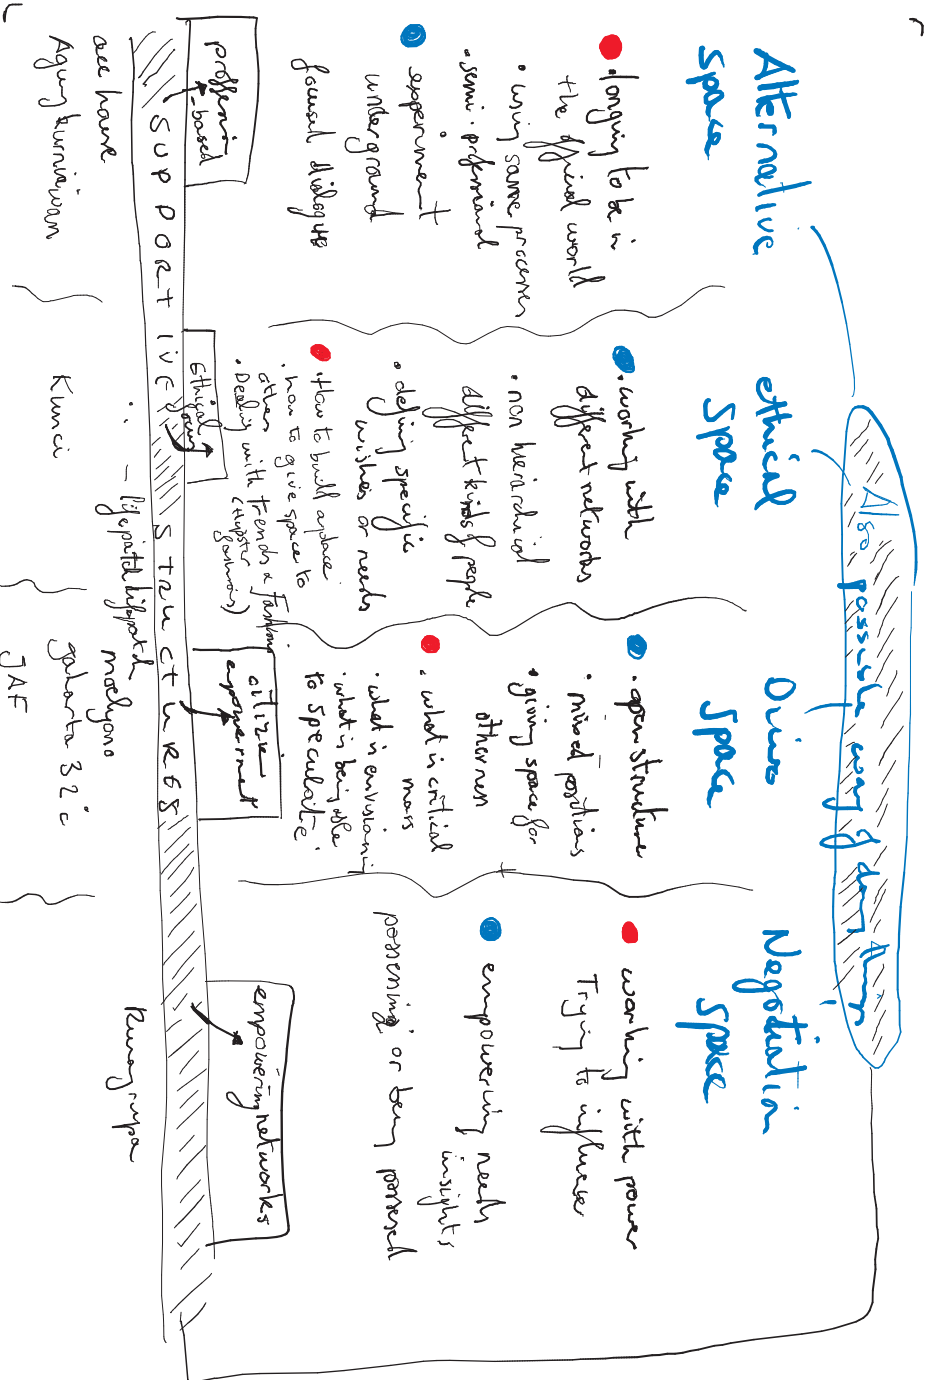 Also possible way of doing things
Alternative
Space
• longing to be in
the official world
• using same processes
• semi-professional
experiment
underground
focused dialogue
profession
-based
ethical
Space
• working with
different networks
• non hierarchical
different kinds of people
• defining specific
wishes or needs
• How to build a place
• how to give space to
others
• Dealing with trends & fashion
(Hypster
fashions)
Ethical
focus
Space
• open structure
• mixed positions
• giving space for
otherness
• what is critical
mass
• what is envisioning
• what is being able
to speculate
citizen
Negotiation
Space
working with power
Trying to influence
empowering needs
insights
possessing or being possessed
empowering networks
SUPPORTIVE STRUCTURES
house
Agung Kurniawan
Kunci
- lifepatch
moelyono
JAF
Ruangrupa